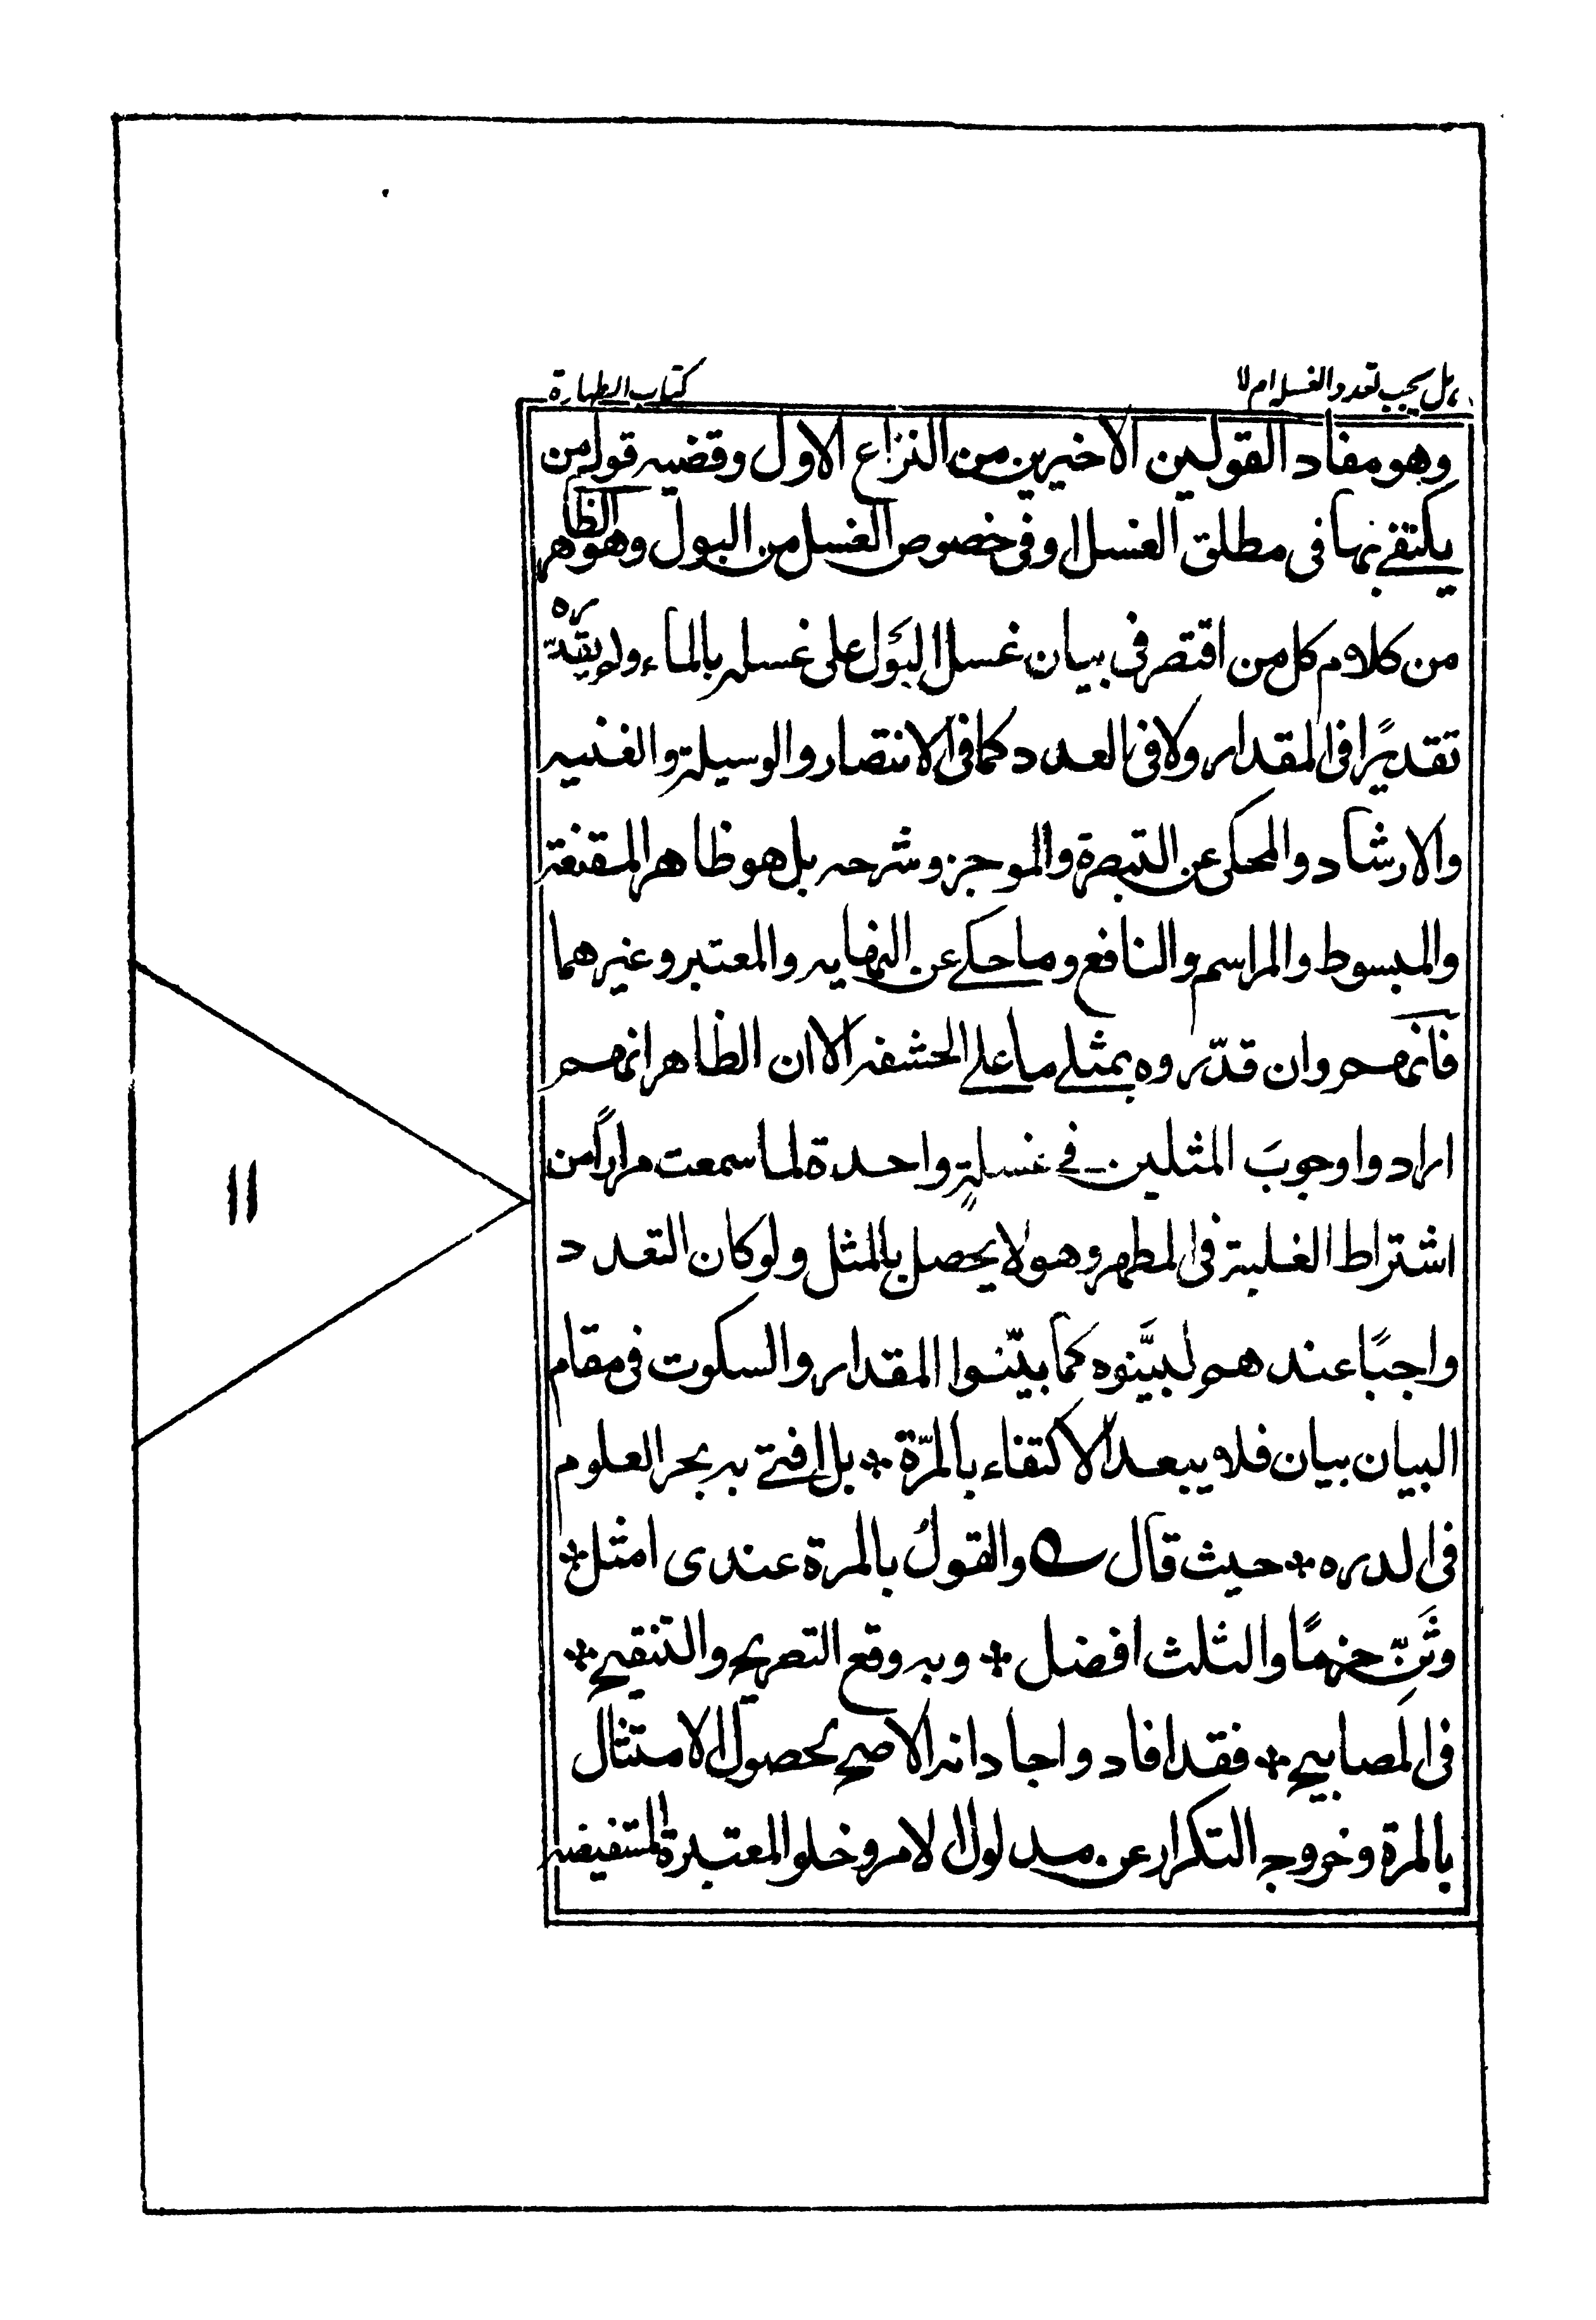 هل يجب تعدد الغسل ام لا
كتاب الطهارة
وهو مفاد القولين الاخيرين من النزاع الاول وقضيه قول من
يكتفے بها فى مطلق الغسل او فى خصوص الغسل من البول وهو الظاهر
من كلام كل من اقتصر فى بيان غسل البول على غسله بالماء ولم يقدّره
تقديرًا فى المقدار ولا فى العدد كما فى الانتصار والوسيلة والغنيه
والارشاد والمحكى عن التبصرة والموجز وشرحه بل هو ظاهر المقنعة
والمبسوط والمراسم والنافع وما حكے عن النهايه والمعتبر وغيرهما
فانهم وان قدّروه بمثلے ما علے الحشفة الا ان الظاهر انهم
ارادوا وجوبَ المثلين فے غسلةٍ واحدة لما سمعت مرارًا من
اشتراط الغلبة فى المطهر وهو لا يحصل بالمثل ولو كان التعدد
واجبًا عندهم لبيَّنوه كما بيّنوا المقدار والسكوت فى مقام
البيان بيان فلا يبعد الاكتفاء بالمرّة * بل افتے به بحر العلوم
فى الدره * حيث قال ے والقولُ بالمرة عندى امثل *
وثَنِّ حزمًا والثلث افضل * وبه وقع التصريح والتنقيح *
فى المصابيح * فقد افاد واجاد انه الاصح لحصول الامتثال
بالمرة وخروج التكرار عن مدلول الامر وخلو المعتبرة المستفيضه
۱۱